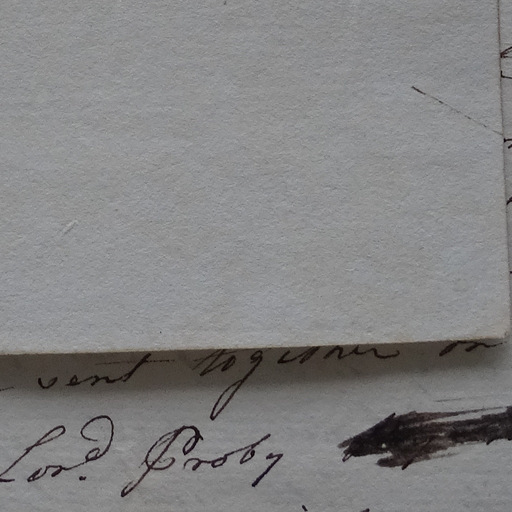 sent together on
Lord. Proby